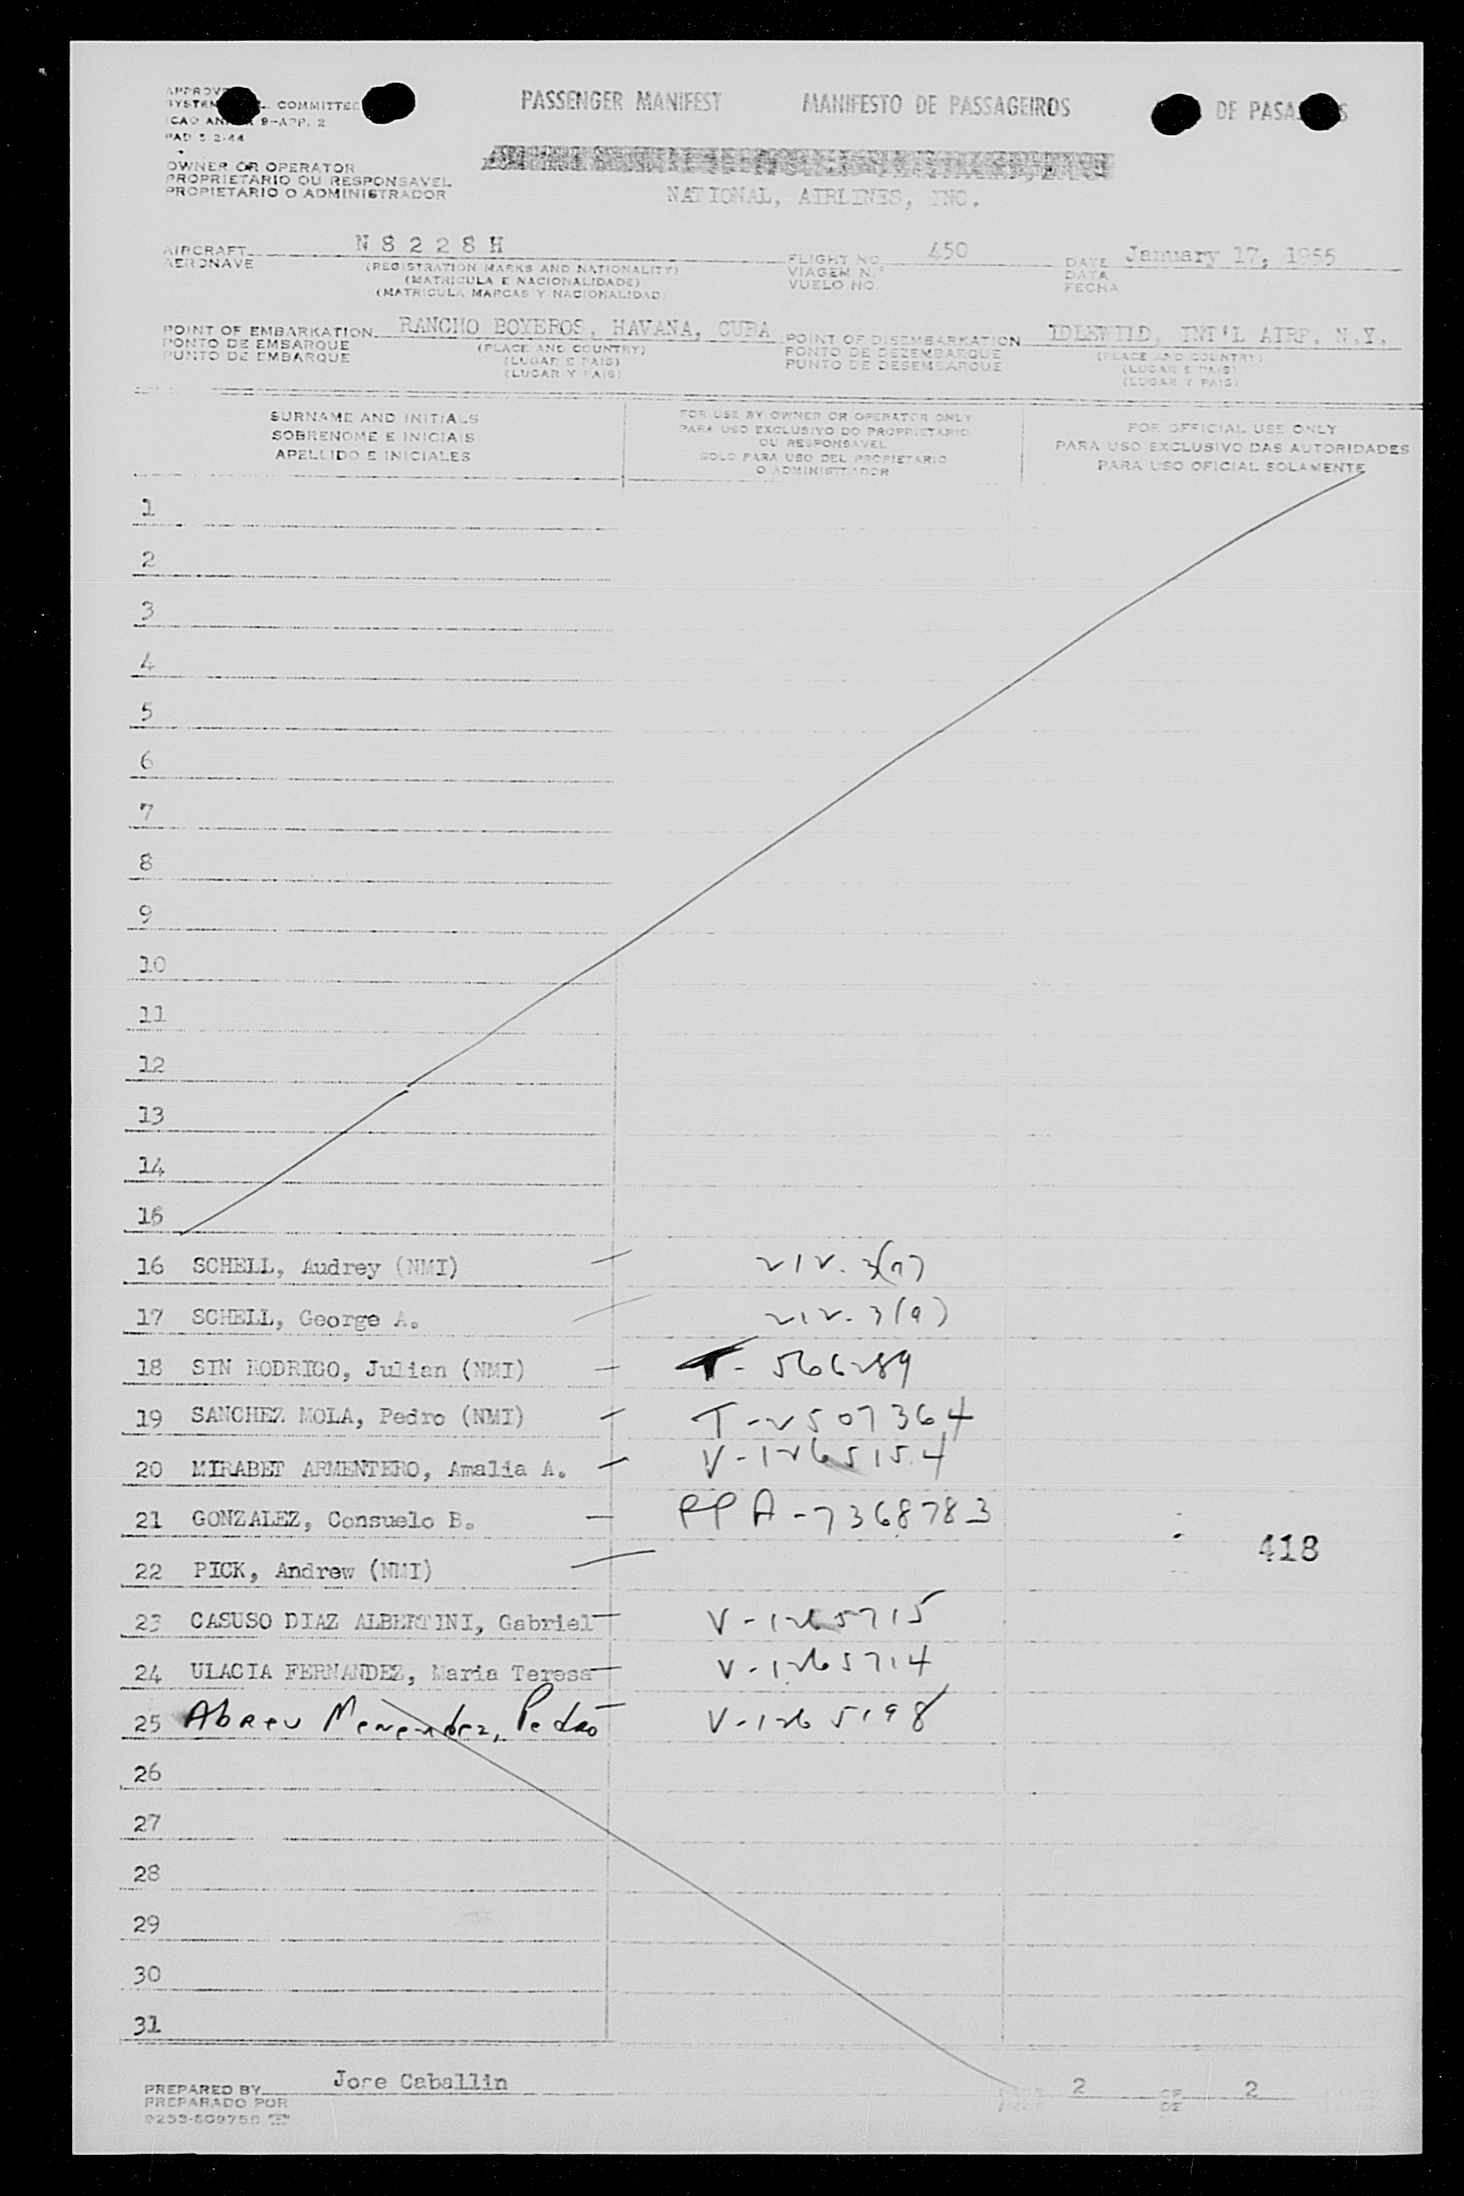 PASSENGER MANIFEST MANIFESTO DE PASSAGEIROS DE PASAJ
COMMITTEE
9-APP. 2
OWNER OR OPERATOR
PROPRIETARIO OU RESPONSAVEL
PROPIETARIO O ADMINISTRADOR
NATIONAL, AIRLINES, INC.
AIRCRAFT N 8 2 2 8 H FLIGHT NO. 450 DATE January 17, 1955
AERONAVE (REGISTRATION MARKS AND NATIONALITY) VIAGEM N.º DATA
(MATRICULA E NACIONALIDADE) VUELO NO. FECHA
(MATRICULA MARCAS Y NACIONALIDAD)
POINT OF EMBARKATION RANCHO BOYEROS, HAVANA, CUBA POINT OF DISEMBARKATION IDLEWILD, INT'L AIRP. N.Y.
PONTO DE EMBARQUE (PLACE AND COUNTRY) PONTO DE DEZEMBARQUE (PLACE AND COUNTRY)
PUNTO DE EMBARQUE (LUGAR E PAIS) PUNTO DE DESEMBARQUE (LUGAR E PAIS)
(LUGAR Y PAIS) (LUGAR Y PAIS)
SURNAME AND INITIALS FOR USE BY OWNER OR OPERATOR ONLY FOR OFFICIAL USE ONLY
SOBRENOME E INICIAIS PARA USO EXCLUSIVO DO PROPRIETARIO PARA USO EXCLUSIVO DAS AUTORIDADES
APELLIDO E INICIALES OU RESPONSAVEL PARA USO OFICIAL SOLAMENTE
SOLO PARA USO DEL PROPIETARIO
O ADMINISTRADOR
1
2
3
4
5
6
7
8
9
10
11
12
13
14
15
16 SCHELL, Audrey (NMI)
17 SCHELL, George A. 212.3(a)
18 SIN RODRIGO, Julian (NMI) T-566289
19 SANCHEZ MOLA, Pedro (NMI) T-2507364
20 MIRABET ARMENTERO, Amalia A. V-1265154
21 GONZALEZ, Consuelo B. PP A-7368783
418
22 PICK, Andrew (NMI)
23 CASUSO DIAZ ALBERTINI, Gabriel V-1265715
24 ULACIA FERNANDEZ, Maria Teresa V-1265714
25 Abreu Menendez, Pedro V-1265198
26
27
28
29
30
31
PREPARED BY Jose Caballin 2 OF 2
PREPARADO POR DE